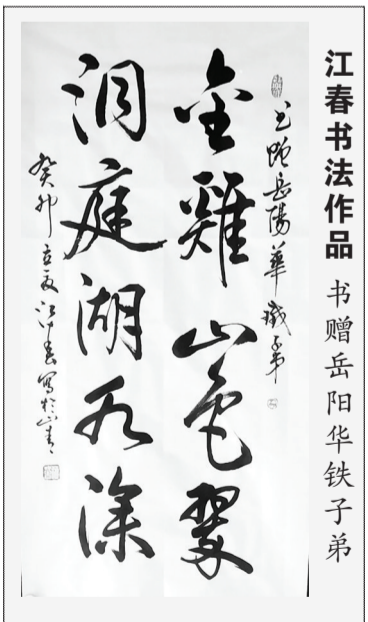 江春书法作品 书赠岳阳华铁子弟
书赠岳陽華鐵子弟
金雞山色翠
洞庭湖水深
癸卯立夏江春寫於